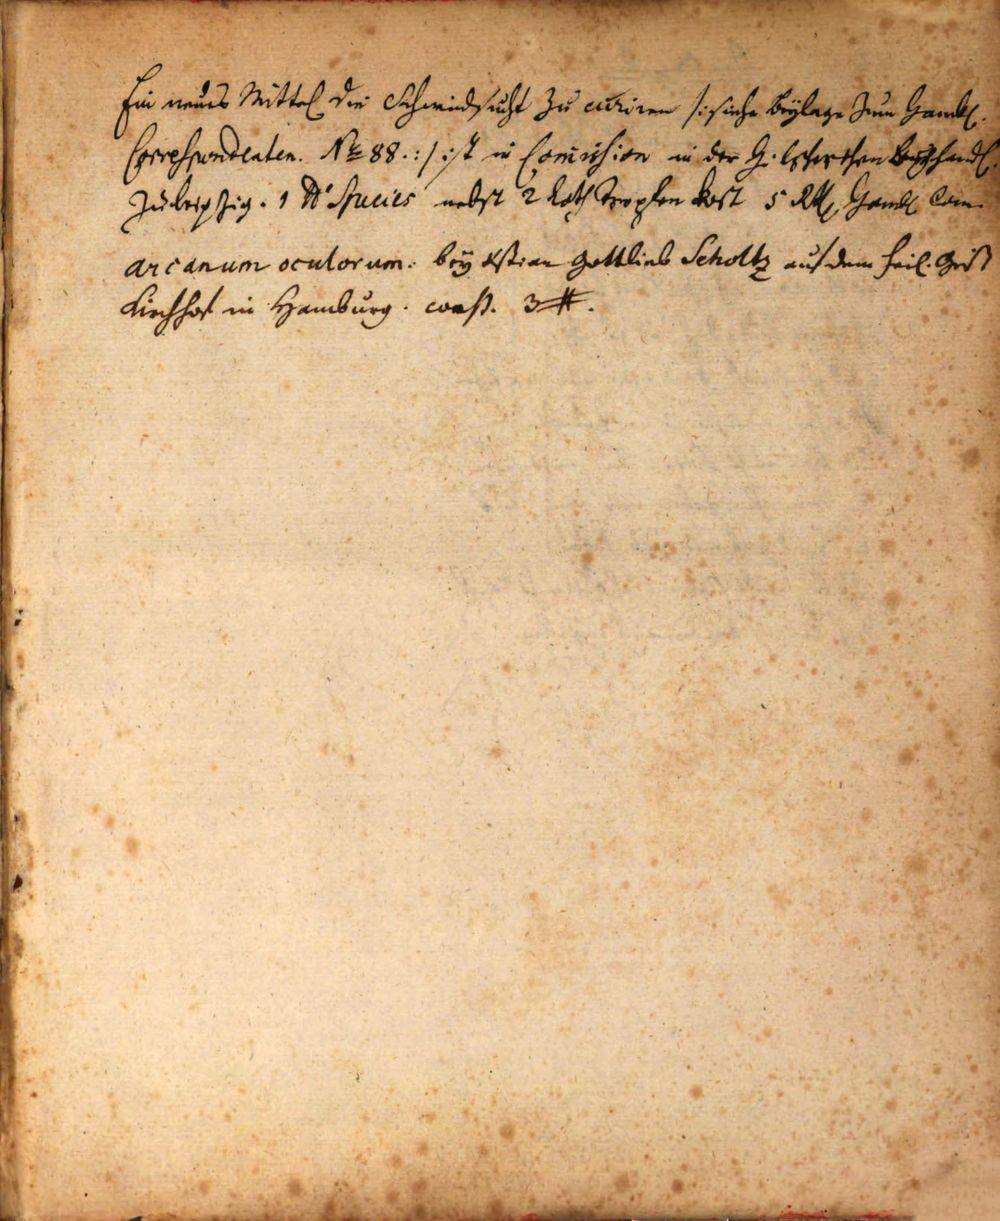 Ein neues Mittel die Schwindsucht zu curiren /: siehe Beylage zum Hamb.
Correspondenten. No 88. :/ ist in Comission in der Buchhandl.
zu Leipzig. 1 ℔ Species nebst 2 Loth Tropfen kost 5 Rthl. Hamb.
arcanum oculorum. bey Gottlieb Scholtz auf dem heil. Geist
Kirchhof in Hamburg. 3 #.